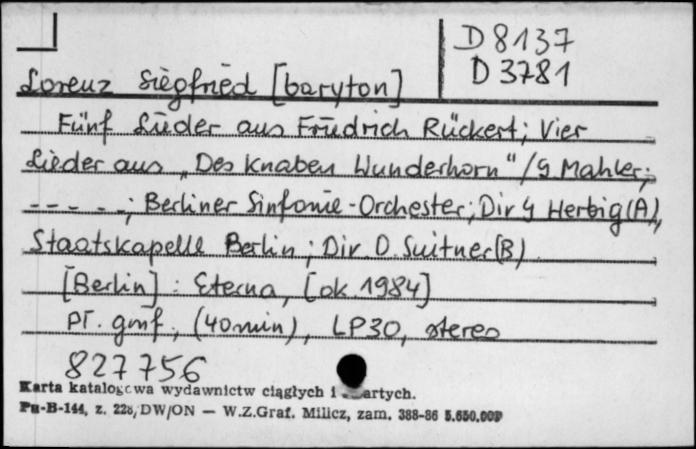 D 8137
D 3781
Lorenz Siegfried [baryton]
Fünf Lieder aus Friedrich Rückert; Vier
Lieder aus „Des Knaben Wunderhorn"/G. Mahler;
- - - - -; Berliner Sinfonie-Orchester; Dir G Herbig (A),
Staatskapelle Berlin; Dir. O. Suitner (B)
[Berlin] : Eterna, [ok. 1984]
Pł. gmf., (40 min), LP30, stereo
827756
Karta katalogowa wydawnictw ciągłych i
Pu-B-144, z. 228/DW/ON — W.Z.Graf. Milicz, zam. 388-86 5.650.000